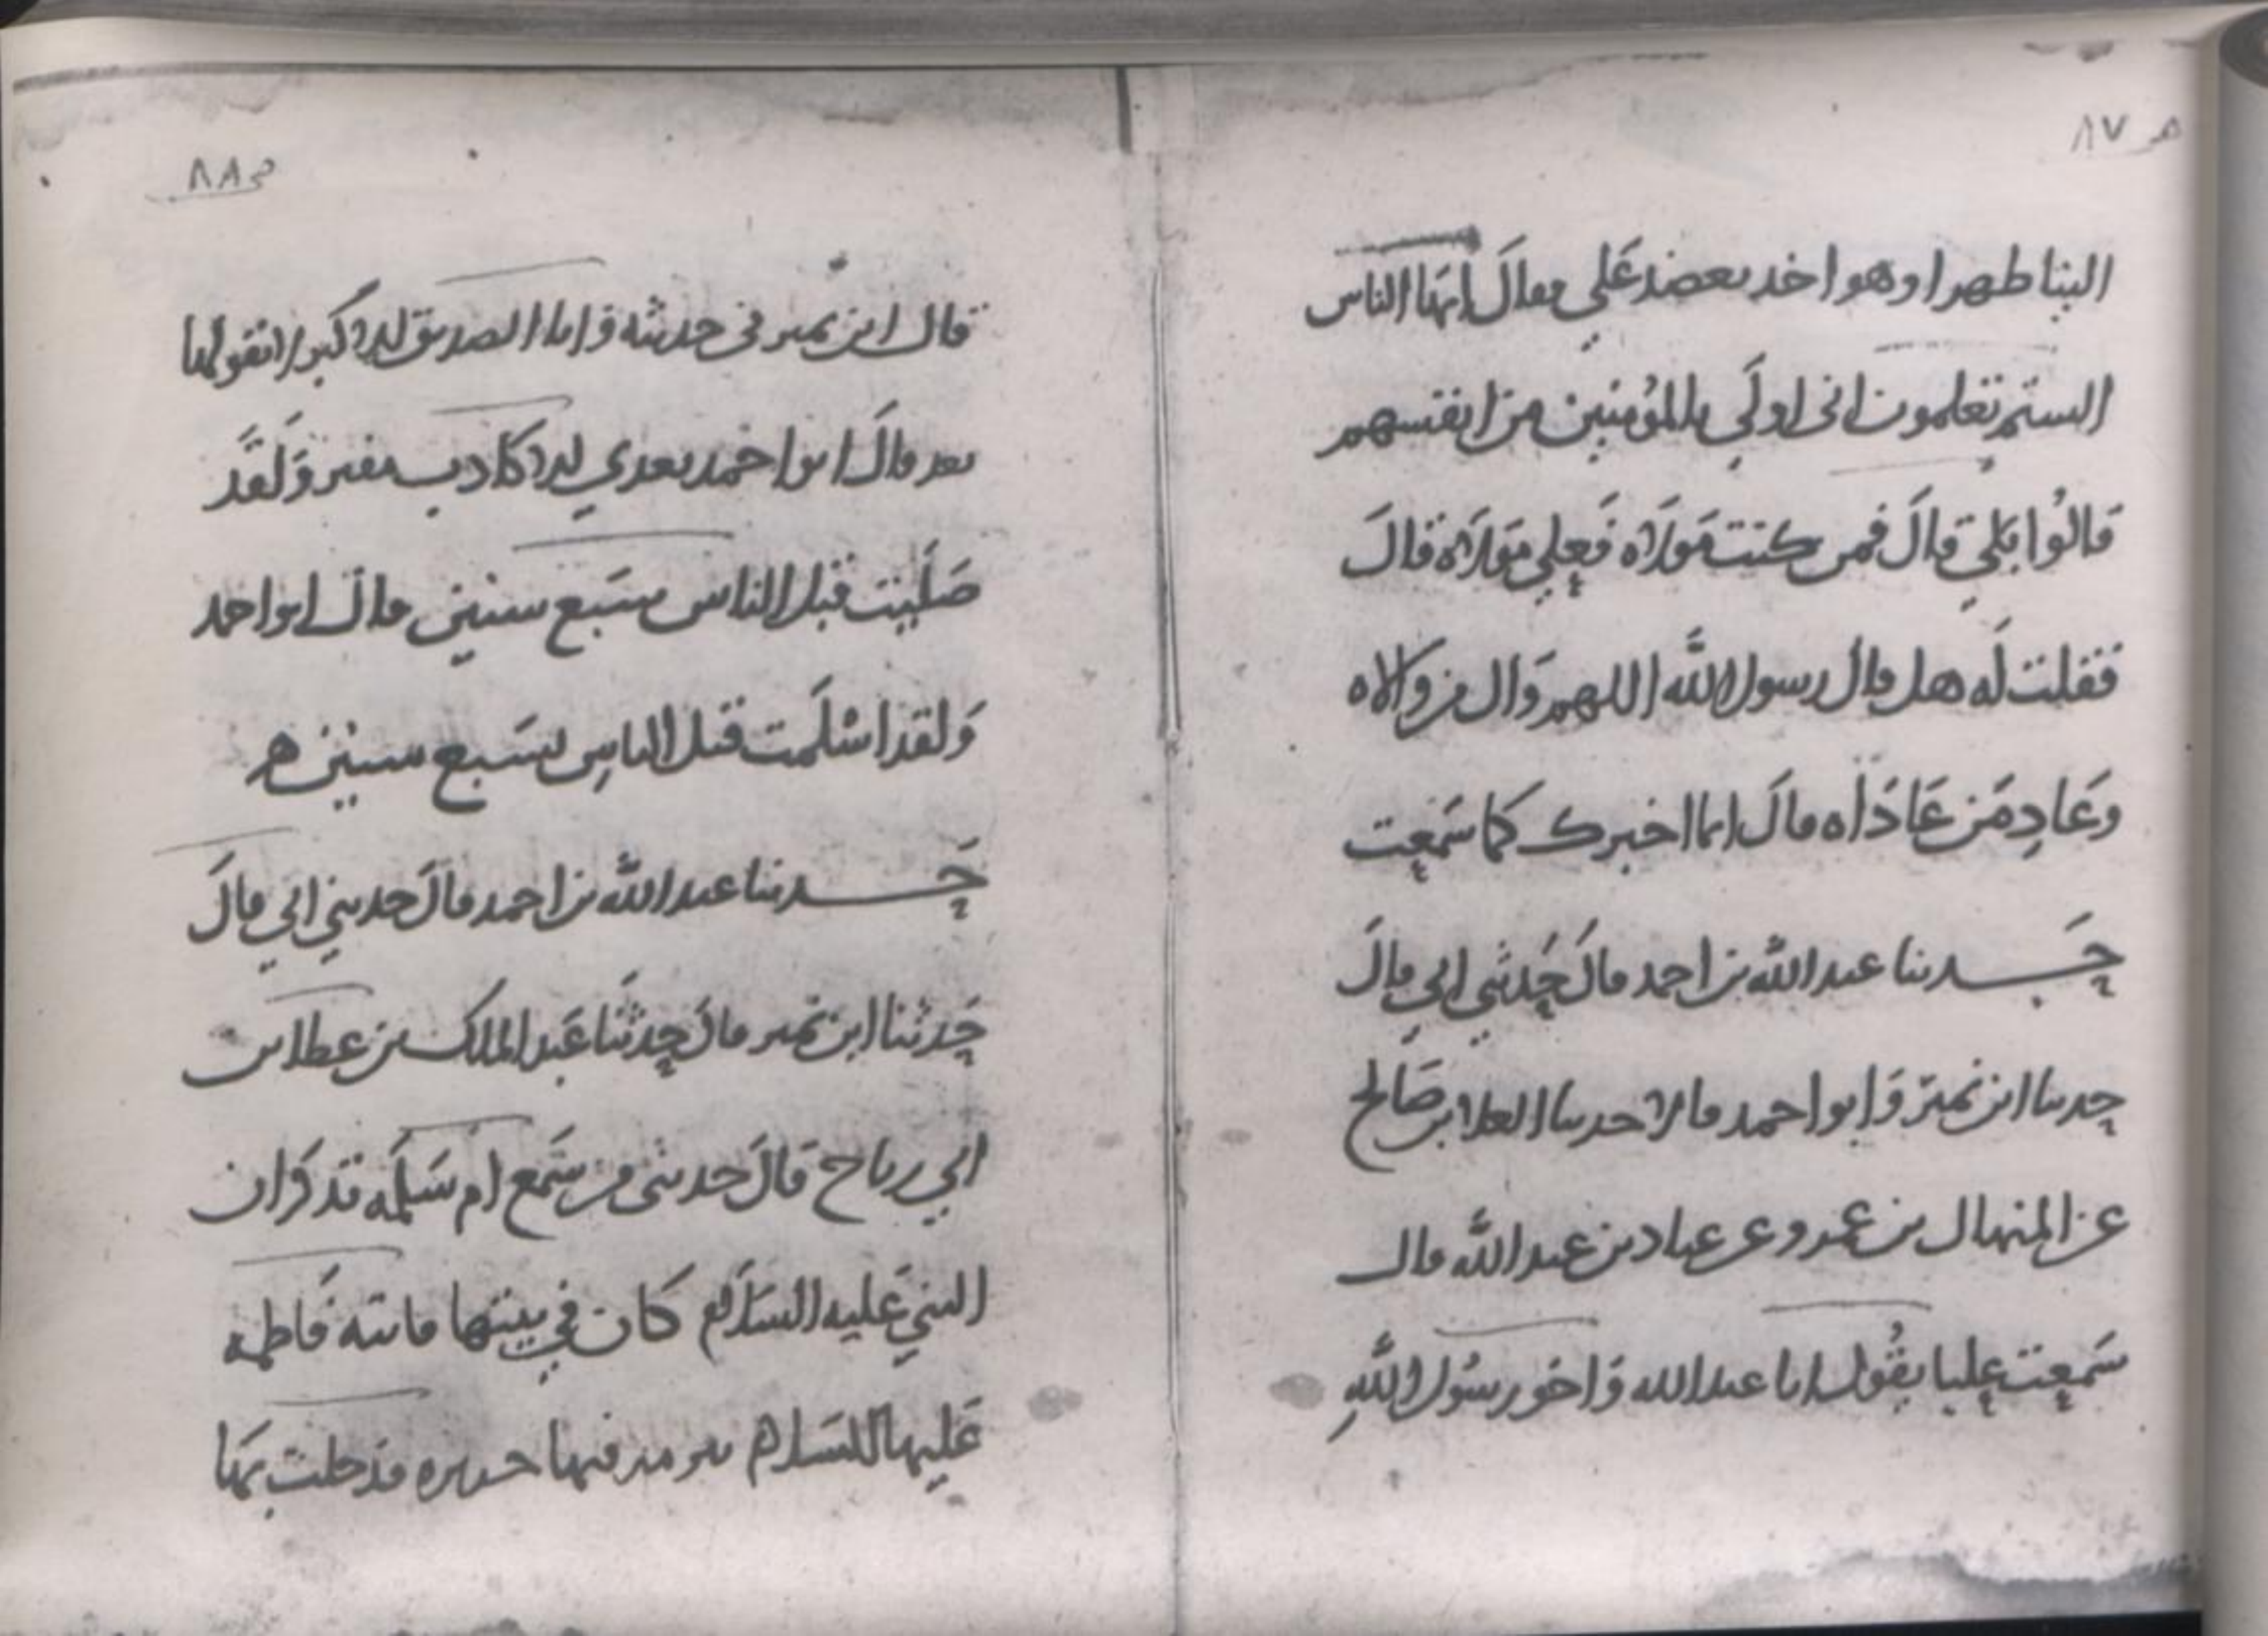 ص ٨٧
الينا ظهرا وهو اخذ بعضد علي فقال ايها الناس
الستم تعلمون اني اولي بالمؤمنين من انفسهم
قالوا بلي قال فمن كنت مولاه فعلي مولاه قال
فقلت له هل قال رسول الله اللهم وال من والاه
وعاد من عاداه قال انما اخبرك كما سمعت
حدثنا عبد الله بن احمد قال حدثني ابي قال
حدثنا ابن نمير وابو احمد قالا حدثنا العلا بن صالح
عن المنهال بن عمرو عن عباد بن عبد الله قال
سمعت عليا يقول انا عبد الله واخو رسول الله
ص ٨٨
قال ابن نمير في حديثه وانا الصديق الاكبر لا يقولها
بعد قال ابو احمد بعدي الا كاذب مفتر ولقد
صليت قبل الناس سبع سنين قال ابو احمد
ولقد اسلمت قبل الناس بسبع سنين ه
حدثنا عبد الله بن احمد قال حدثني ابي قال
حدثنا ابن نمير قال حدثنا عبد الملك بن عطا بن
ابي رباح قال حدثني من سمع ام سلمه تذكر ان
النبي عليه السلام كان في بيتها فاتته فاطمه
عليها السلام ببرمه فيها حريره فدخلت بها